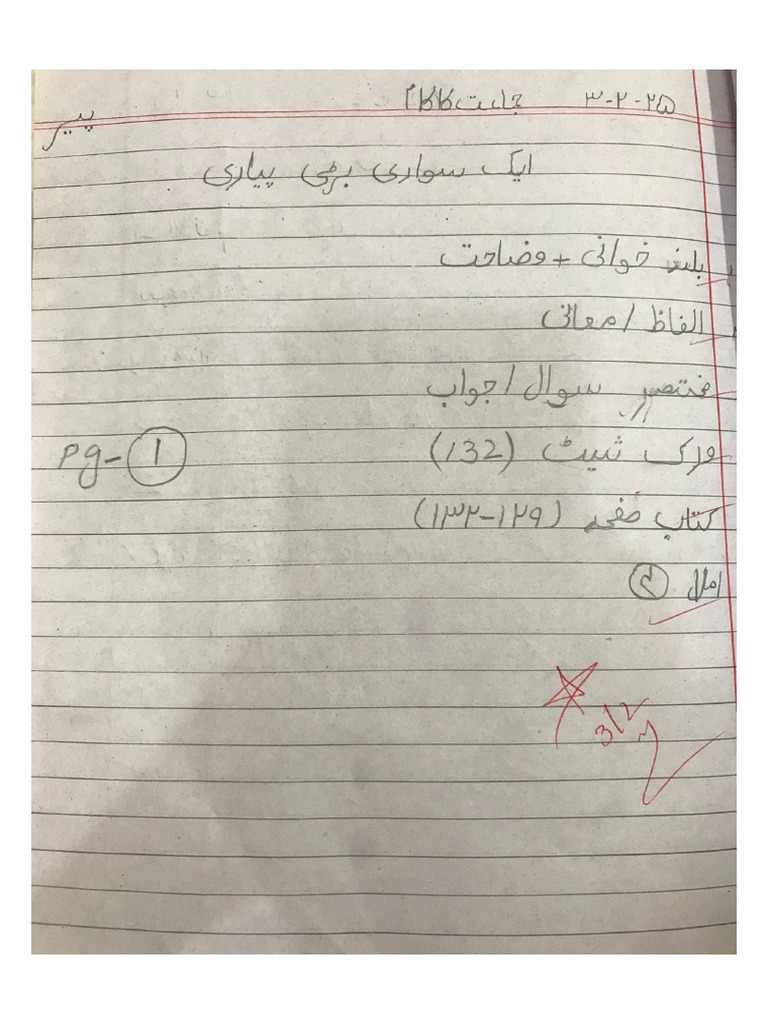 ۳-۲-۲۵ جماعت کا کام پیر
ایک سواری بڑی پیاری
بلند خوانی + وضاحت
الفاظ / معانی
مختصر سوال / جواب
ورک شیٹ (132) pg-1
کتاب صفحہ (۱۲۹-۱۳۲)
املا
3/2